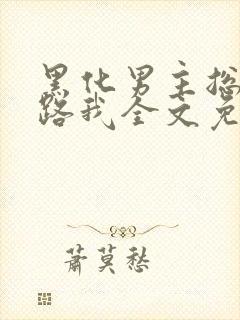 黑化男主总
路我全文免
萧莫愁